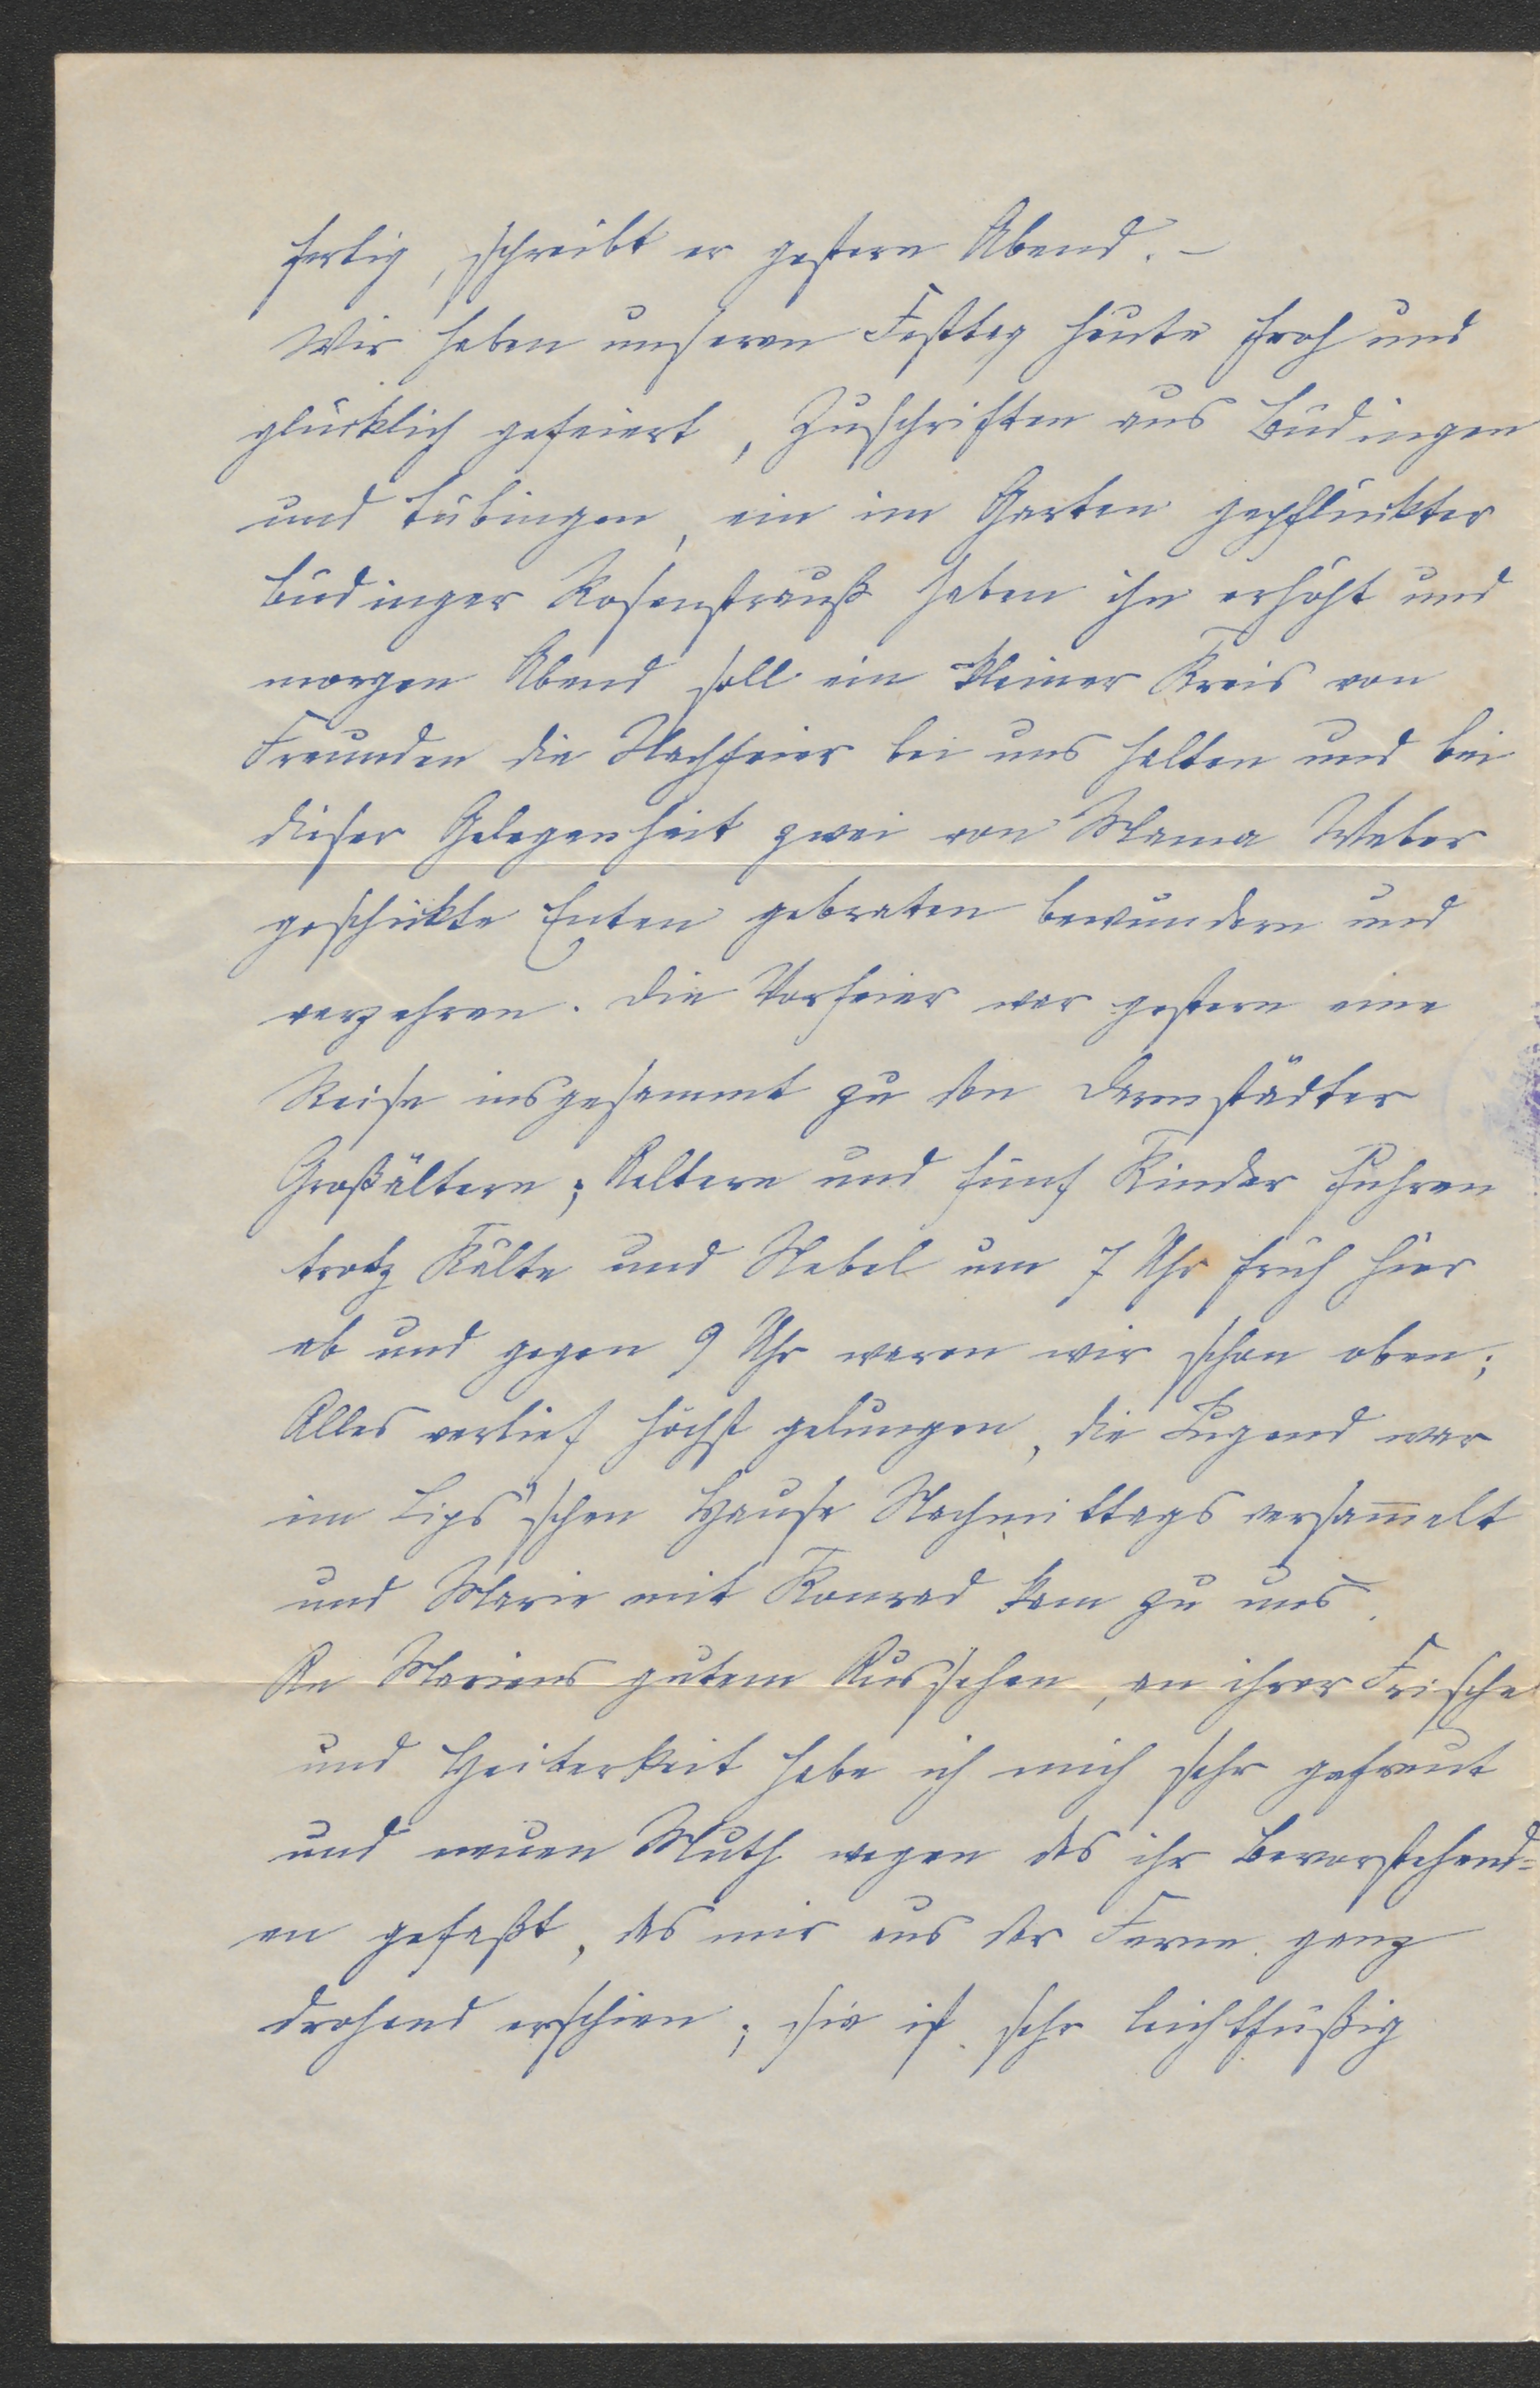 fertig, schreibt er gestern Abend. –
Wir haben unseren Festtag heute froh und
glücklich gefeiert, Zuschriften aus Büdingen
und Tübingen, ein im Garten gepflückter
Büdinger Rosenstrauß haben ihn erhöht und
morgen Abend soll ein kleiner Kreis von
Freunden die Nachfeier bei uns halten und bei
dieser Gelegenheit zwei von Mama Weber
geschickte Enten gebraten bewundern und
verzehren. Die Vorfeier war gestern eine
Reise insgesammt zu den Darmstädter
Großältern; Aeltern und fünf Kinder fuhren
trotz Kälte und Nebel um 7 Uhr früh hier
ab und gegen 9 Uhr waren wir schon oben;
Alles verlief höchst gelungen, die Jugend war
im Lips'schen Hause Nachmittags versam̅elt
und Marie mit Konrad kam zu uns.
An Mariens gutem Aussehen, an ihrer Frische
und Heiterkeit habe ich mich sehr gefreut
und neuen Muth wegen des ihr Bevorstehend=
en gefaßt, das mir aus der Ferne ganz
drohend erschien; sie ist sehr leichtfüßig